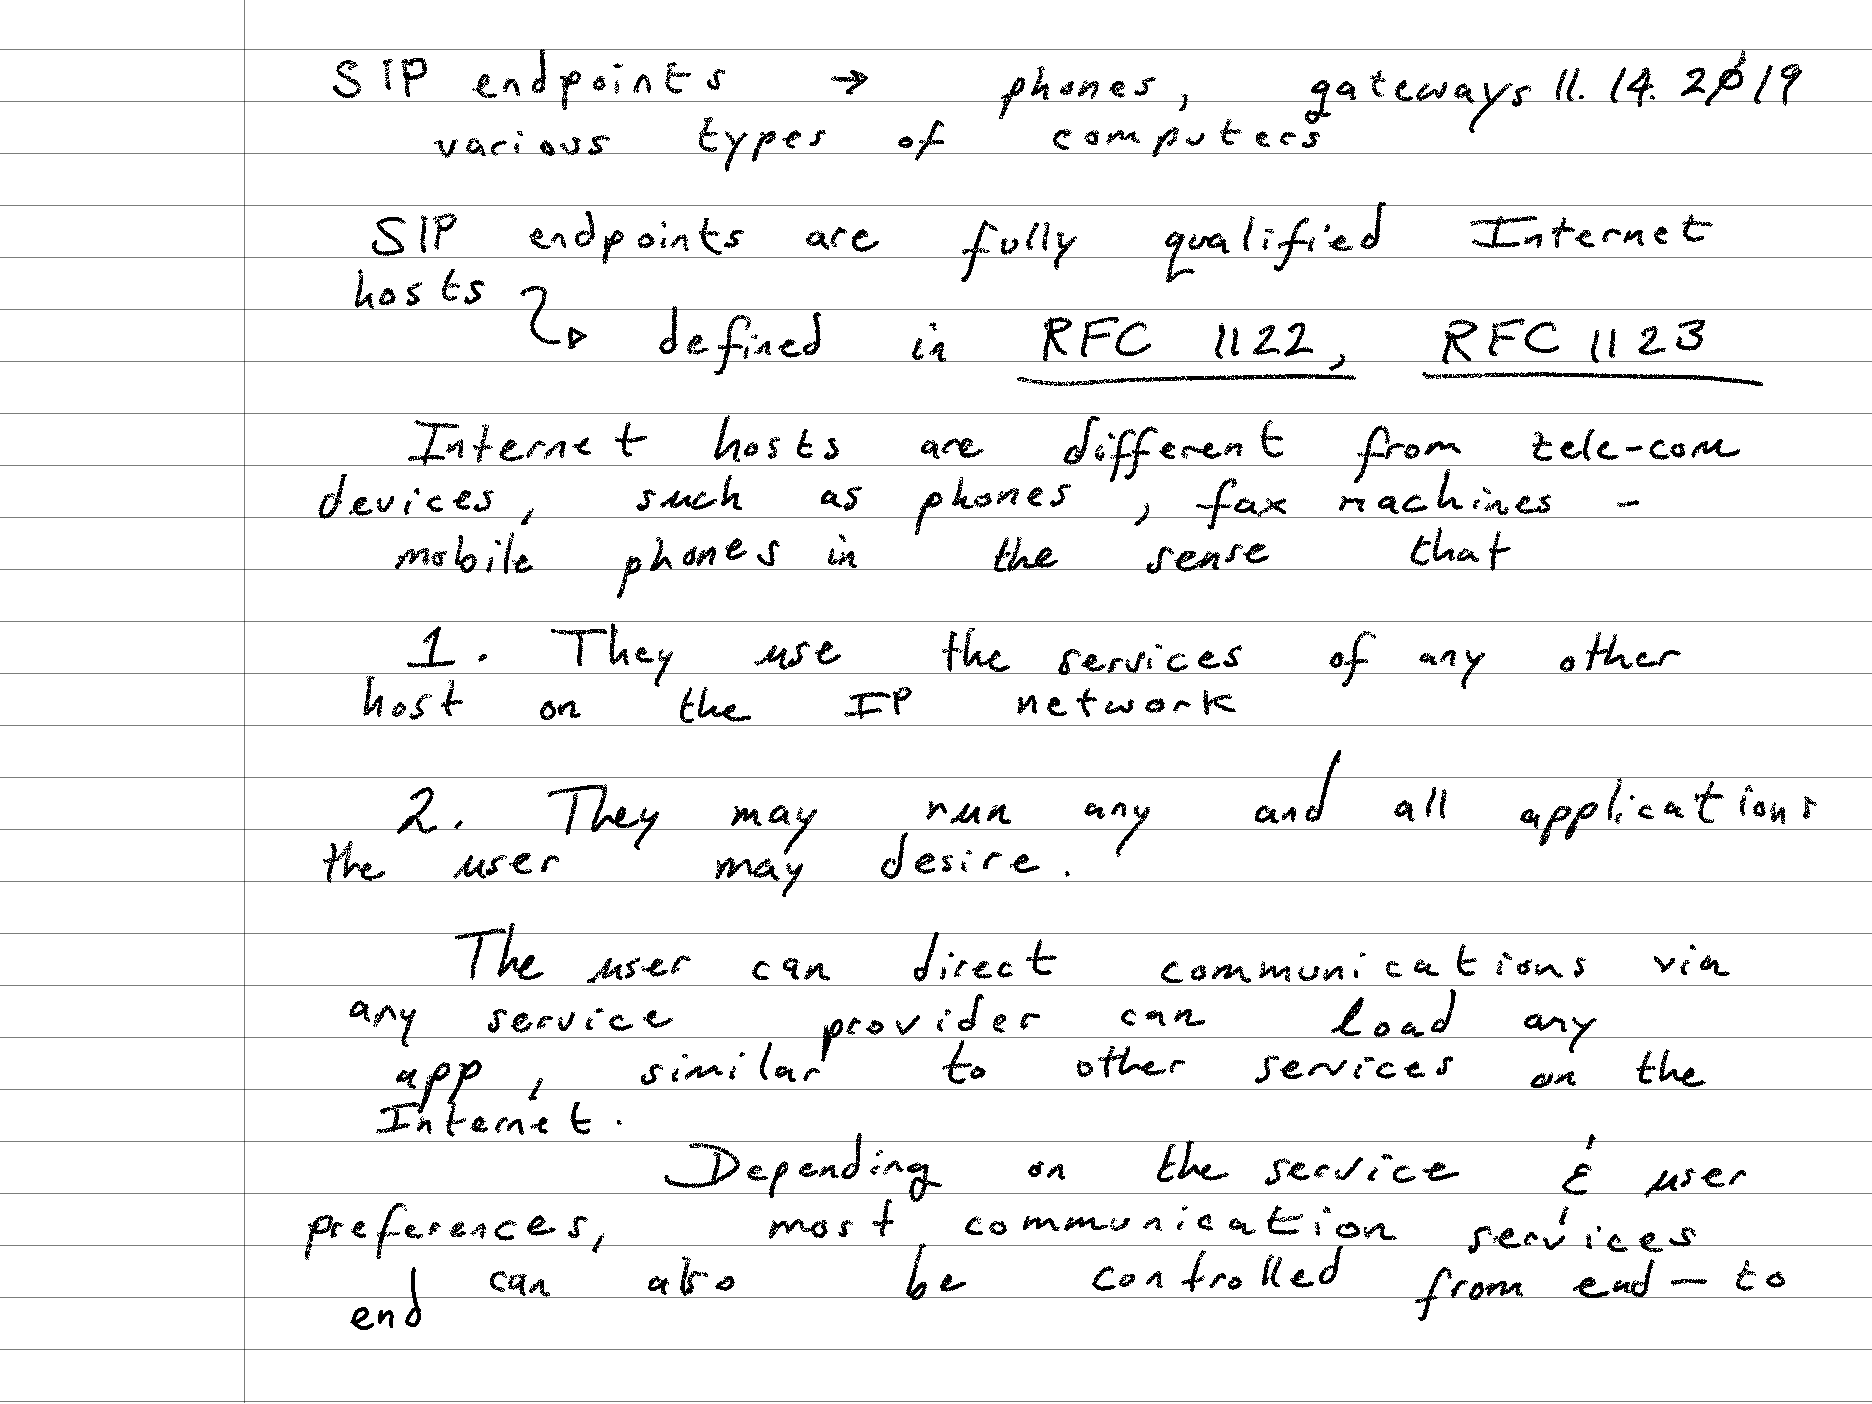 SIP endpoints → phones, gateways 11.14.2019
various types of computers
SIP endpoints are fully qualified Internet
hosts
defined in RFC 1122, RFC 1123
Internet hosts are different from tele-com
devices, such as phones, fax machines -
mobile phones in the sense that
1. They use the services of any other
host on the IP network
2. They may run any and all applications
the user may desire.
The user can direct communications via
any service provider can load any
app, similar to other services on the
Internet.
Depending on the service & user
preferences, most communication services
can also be controlled from end-to
end